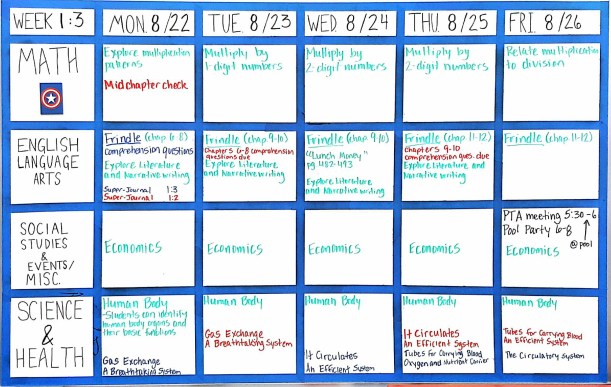 WEEK 1:3
MON. 8/22
TUE 8/23
WED. 8/24
THU. 8/25
FRI. 8/26
MATH
Explore multiplication
patterns
Midchapter check
Multiply by
1-digit numbers
Multiply by
2-digit numbers
Multiply by
2-digit numbers
Relate multiplication
to division
ENGLISH
LANGUAGE
ARTS
Frindle (chap 6-8)
comprehension questions
Explore Literature
and Narrative writing
Super-Journal 1:3
Super-Journal 1:2
Frindle (chap 9-10)
Chapters 6-8 comprehension
questions due
Explore Literature
and Narrative writing
Frindle (chap 9/10)
"Lunch Money"
pg 482-493
Explore Literature
and Narrative writing
Frindle (chap 11-12)
Chapters 9-10
comprehension ques. due
Explore Literature and
Narrative writing
Frindle (chap 11-12)
SOCIAL
STUDIES
&
EVENTS/
MISC.
Economics
Economics
Economics
Economics
PTA meeting 5:30-6
Pool Party 6-8
@pool
Economics
SCIENCE
&
HEALTH
Human Body
-Students can identify
human body organs and
their basic functions
Gas Exchange
A Breathtaking System
Human Body
Gas Exchange
A Breathtaking System
Human Body
It Circulates
An Efficient System
Human Body
It Circulates
An Efficient System
Tubes for Carrying Blood
Oxygen and Nutrient Carrier
Human Body
Tubes for Carrying Blood
An Efficient System
The Circulatory System